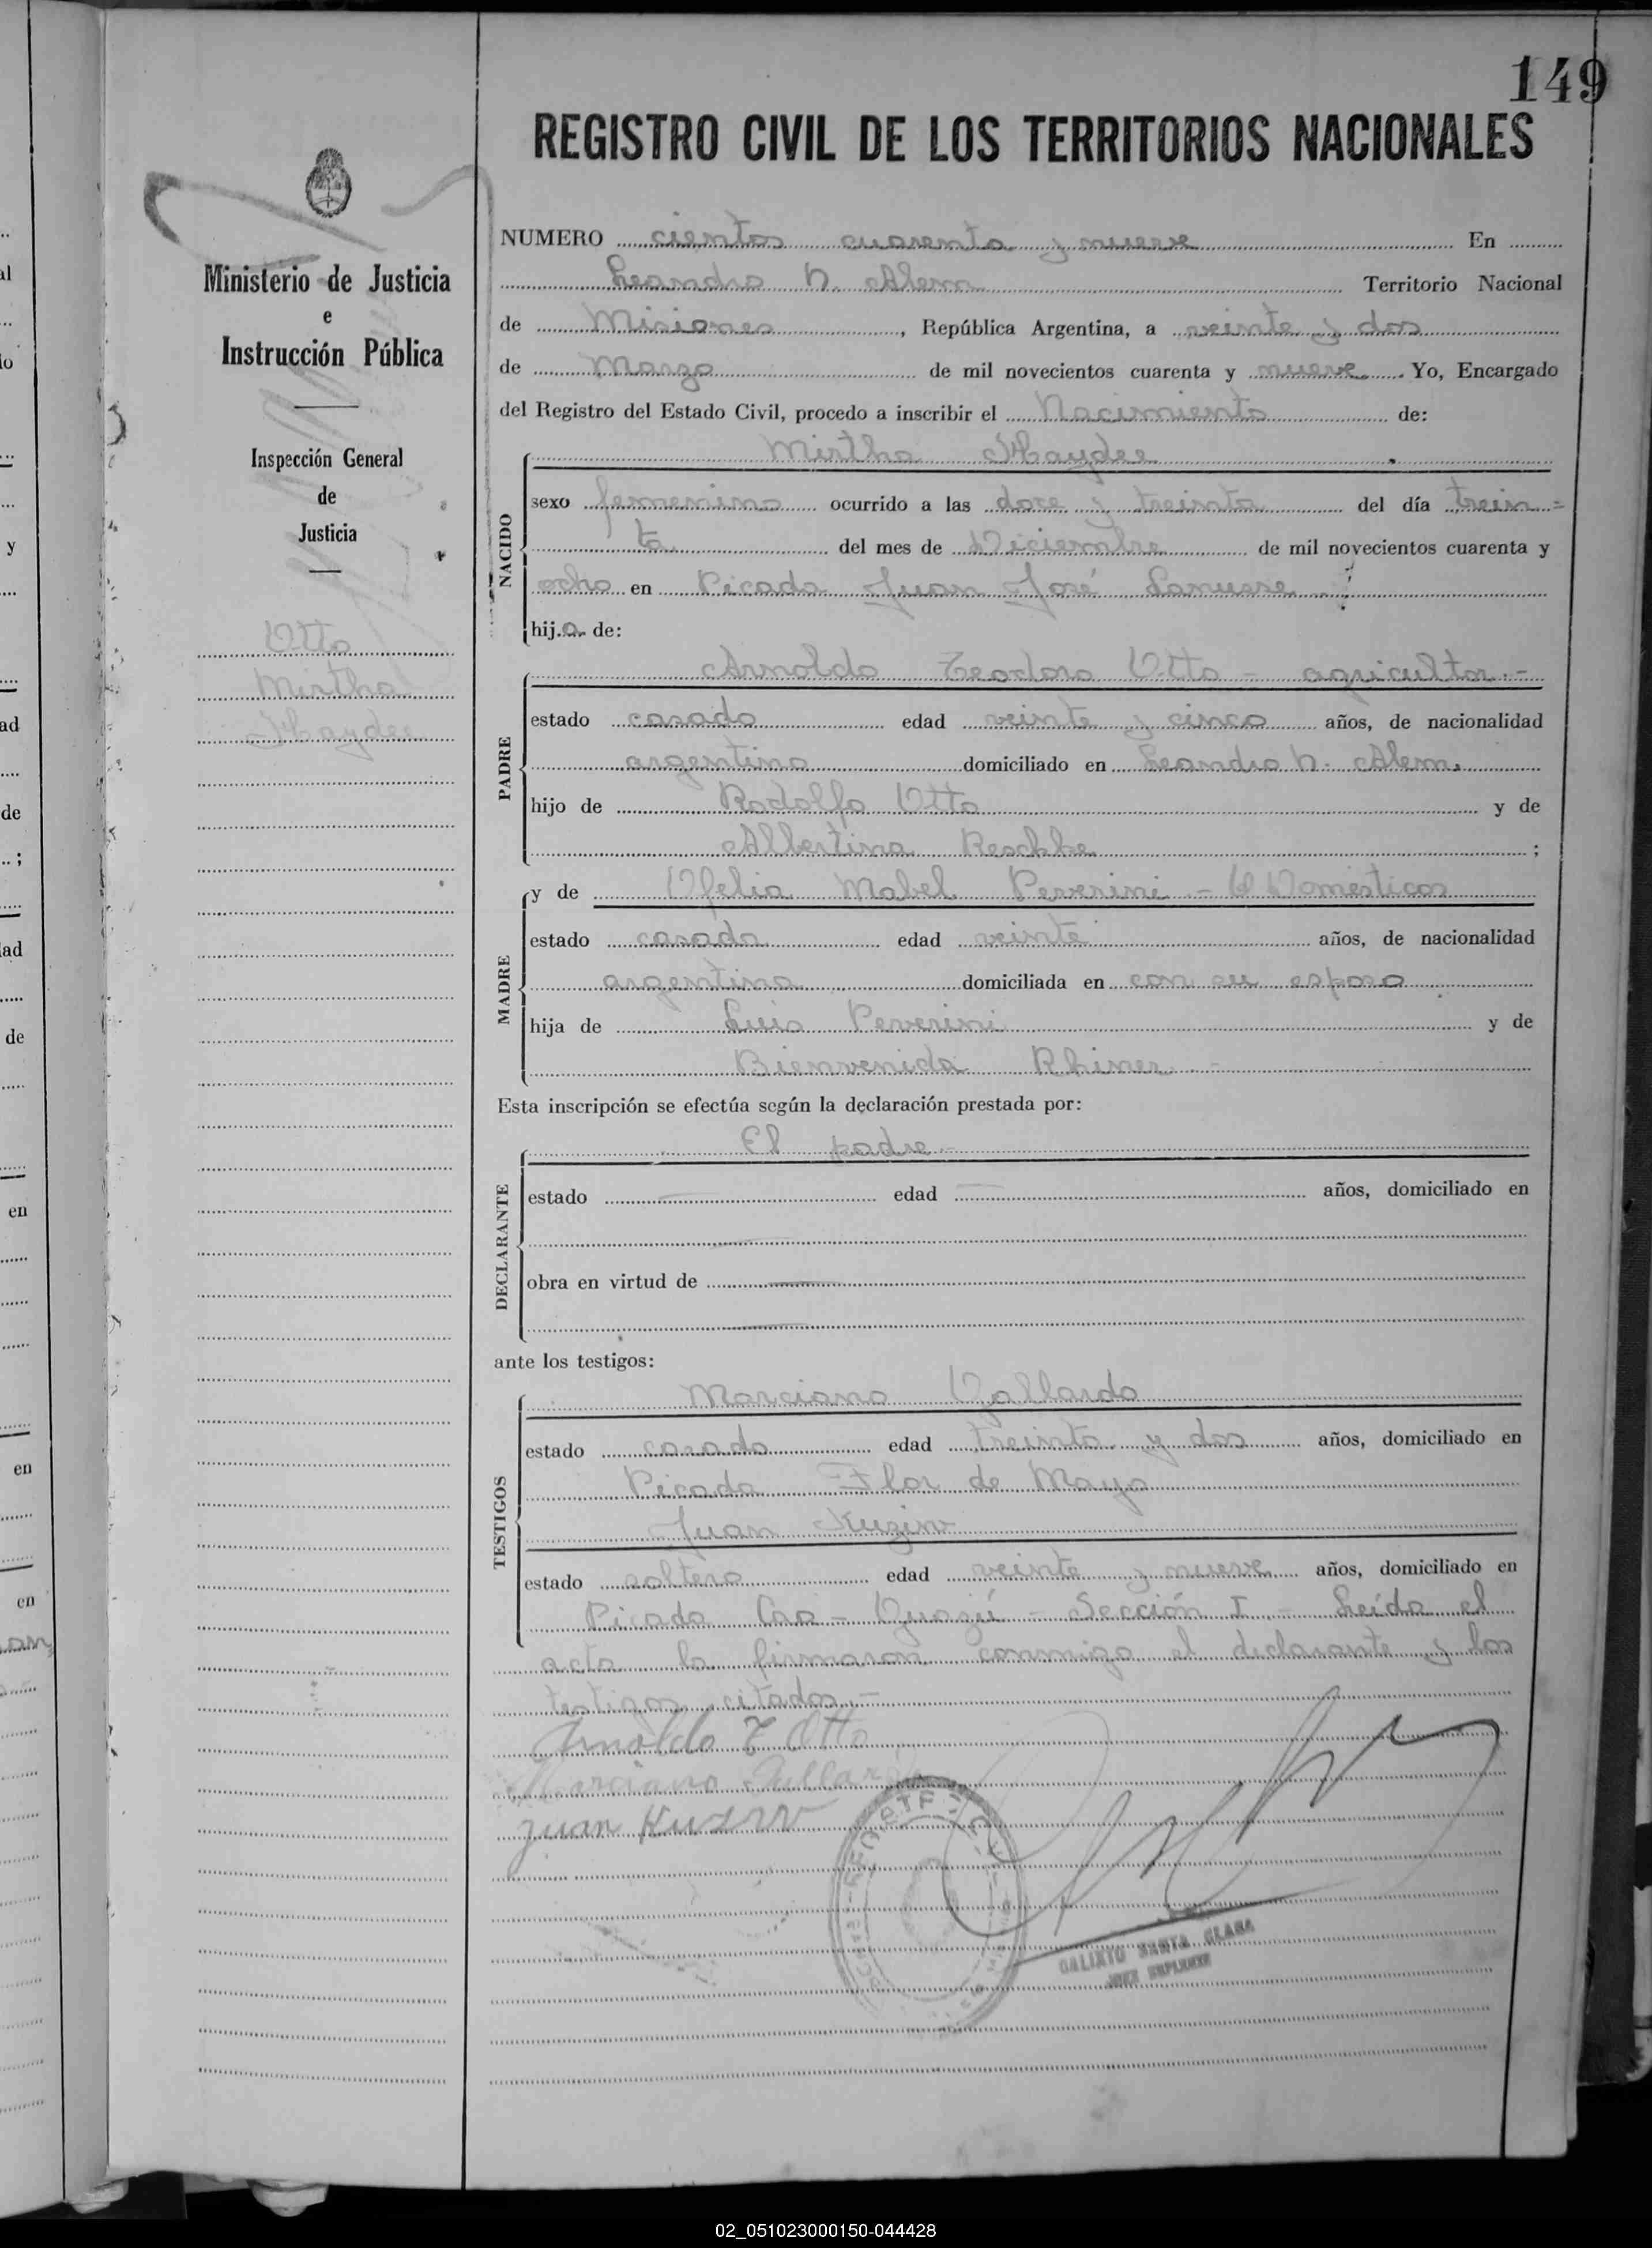 149
REGISTRO CIVIL DE LOS TERRITORIOS NACIONALES
Ministerio de Justicia
e
Instrucción Pública
Inspección General
de
Justicia
Otto
Mirtha
Haydee
NUMERO cientos cuarenta y nueve En
Leandro N. Alem Territorio Nacional
de Misiones, República Argentina, a veinte y dos
de Marzo de mil novecientos cuarenta y nueve. Yo, Encargado
del Registro del Estado Civil, procedo a inscribir el Nacimiento de:
Mirtha Haydee
NACIDO
sexo femenino ocurrido a las doce y treinta del día trein=
ta del mes de Diciembre de mil novecientos cuarenta y
ocho en Picada Juan José Lanusse
hij.a. de:
Arnoldo Teodoro Otto - agricultor.-
PADRE
estado casado edad veinte y cinco años, de nacionalidad
argentina domiciliado en Leandro N. Alem.
hijo de Rodolfo Otto y de
Albertina Reschke ;
y de Ofelia Mabel Peverini - Q Domésticos
MADRE
estado casada edad veinte años, de nacionalidad
argentina domiciliada en con su esposo
hija de Luis Peverini y de
Bienvenida Rhiner -
Esta inscripción se efectúa según la declaración prestada por:
El padre -
DECLARANTE
estado edad años, domiciliado en
obra en virtud de
ante los testigos:
Marciano Gallardo
TESTIGOS
estado casado edad treinta y dos años, domiciliado en
Picada Flor de Mayo
Juan Kuziw
estado soltero edad veinte y nueve años, domiciliado en
Picada Caa - Guazú - Sección I - Leída el
acta la firmaron conmigo el declarante y los
testigos citados.-
Arnoldo T Otto
Marciano Gallardo
Juan Kuziw
CALIXTO SANTA CLARA
JUEZ SUPLENTE
02_051023000150-044428